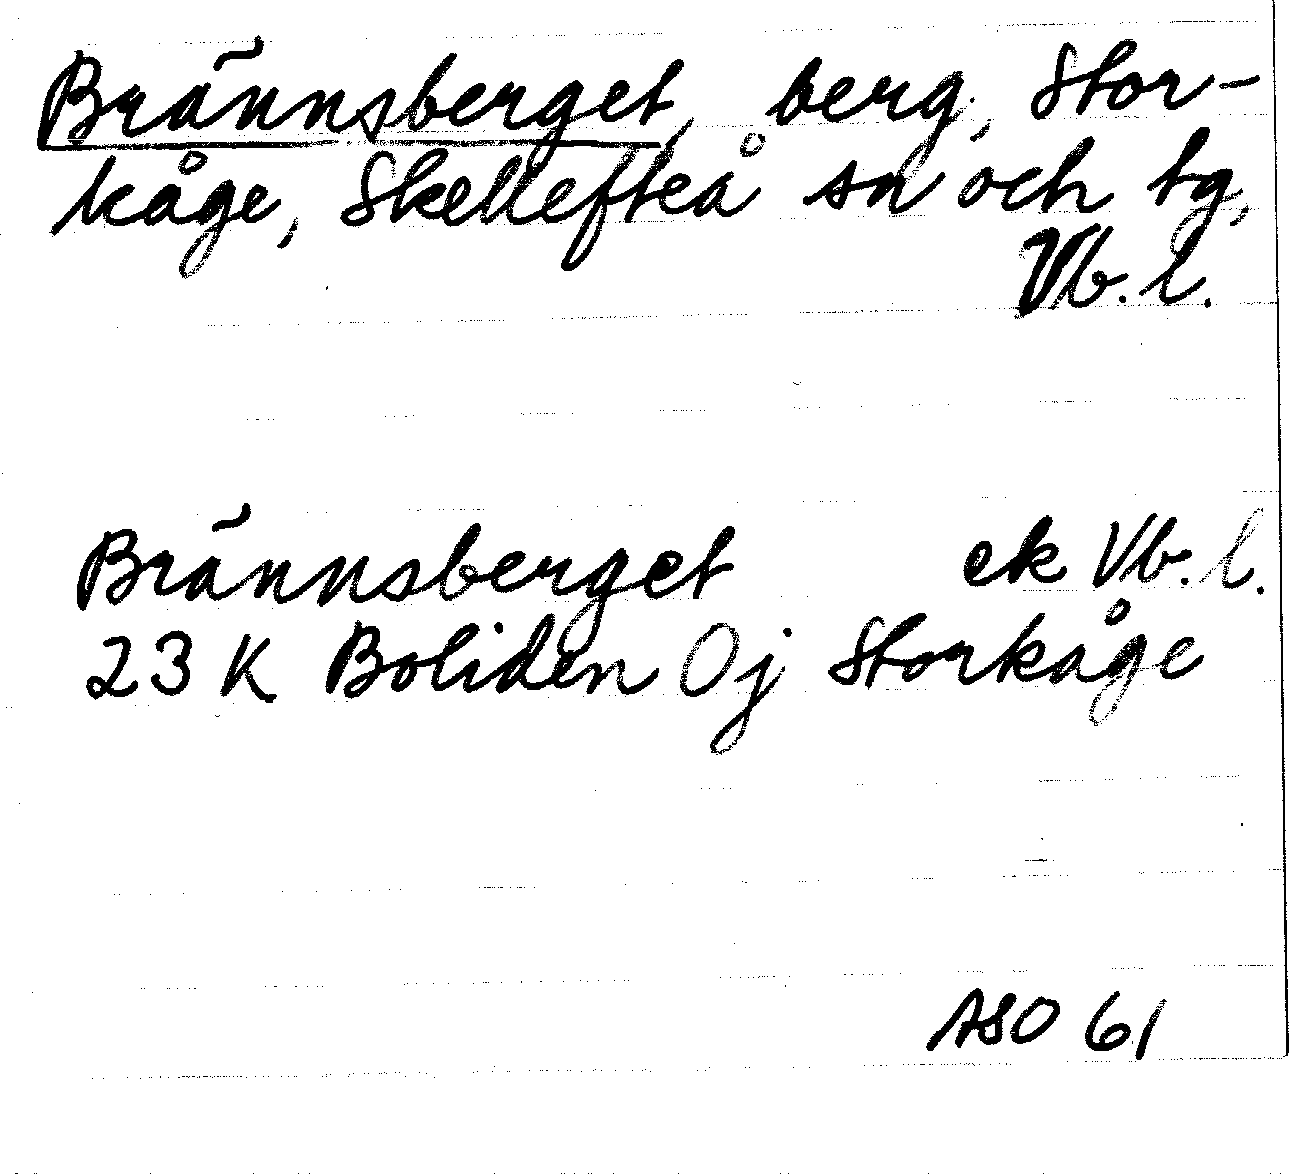 Brännsberget, berg, Stor-
kåge, Skellefteå sn och tg,
Vb. l.
Brännsberget ek Vb. l.
23 K Boliden Oj Storkåge
ASO 61